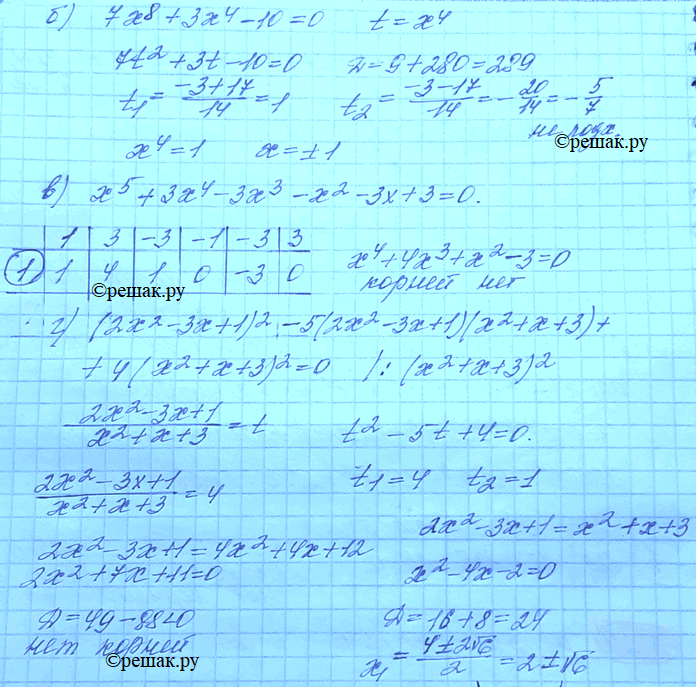 б) 7x⁸ + 3x⁴ - 10 = 0    t = x⁴
7t² + 3t - 10 = 0    Д = 9 + 280 = 289
t₁ = (-3+17)/14 = 1    t₂ = (-3-17)/14 = -20/14 = -5/7
не подх.
©решак.ру
x⁴ = 1    x = ±1
в) x⁵ + 3x⁴ - 3x³ - x² - 3x + 3 = 0.
1 | 3 | -3 | -1 | -3 | 3
1 | 1 | 4 | 1 | 0 | -3 | 0    x⁴ + 4x³ + x² - 3 = 0
©решак.ру    корней нет
г) (2x² - 3x + 1)² - 5(2x² - 3x + 1)(x² + x + 3) +
+ 4(x² + x + 3)² = 0    /: (x² + x + 3)²
(2x² - 3x + 1)/(x² + x + 3) = t    t² - 5t + 4 = 0.
(2x² - 3x + 1)/(x² + x + 3) = 4    t₁ = 4    t₂ = 1
2x² - 3x + 1 = x² + x + 3
2x² - 3x + 1 = 4x² + 4x + 12
2x² + 7x + 11 = 0    x² - 4x - 2 = 0
Д = 49 - 88 < 0    Д = 16 + 8 = 24
нет корней    x₁ = (4 ± 2√6)/2 = 2 ± √6
©решак.ру